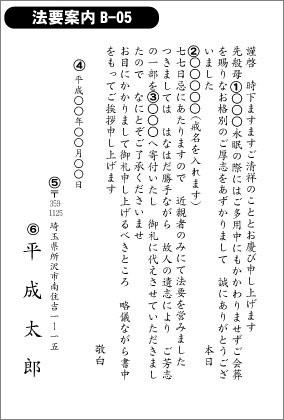 法要案内 B-05
謹啓　時下ますますご清祥のこととお慶び申し上げます
先般母①○○○永眠の際にはご多用中にもかかわりませずご会葬
を賜りなお格別のご厚志をあずかりまして　誠にありがとうござ
いました　本日
②○○○○○(戒名を入れます)
七七日忌にあたりますので　近親者のみにて法要を営みました
つきましては　はなはだ勝手ながら　故人の遺志により　ご芳志
の一部を③○○○へ寄付いたし　御礼に代えさせていただきまし
たので　なにとぞご了承くださいませ
お目にかかりまして御礼申し上げるべきところ　略儀ながら書中
をもってご挨拶申し上げます
敬白
④平成○○年○○月○○日
⑤〒359-1125　埼玉県所沢市南住吉一ー一五
⑥平成太郎